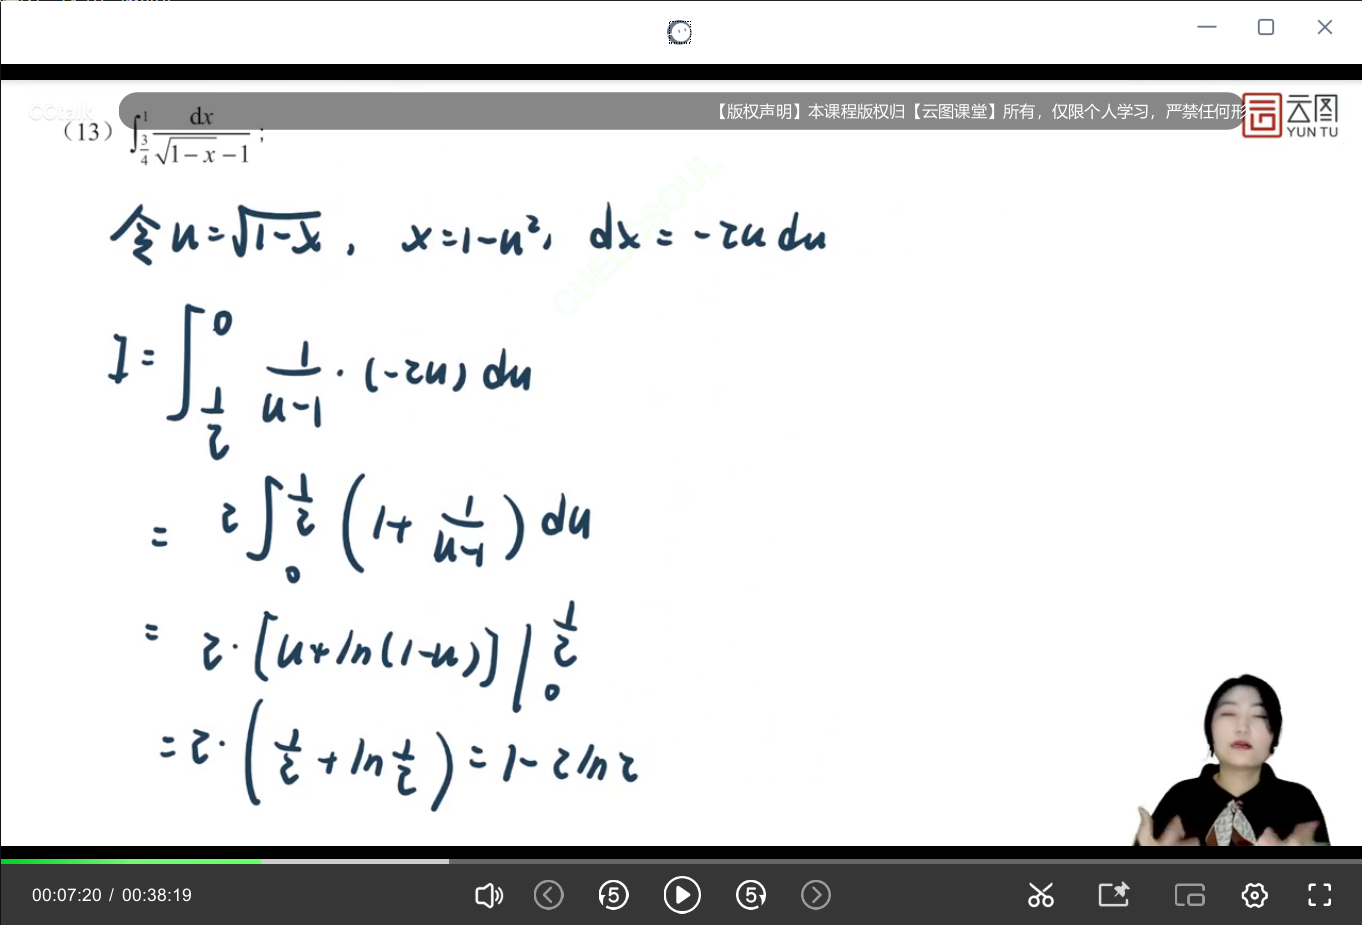 CCtalk
【版权声明】本课程版权归【云图课堂】所有，仅限个人学习，严禁任何形
云图
YUN TU
（13）∫_{3/4}^{1} dx/(√(1−x) −1) ;
令 u=√(1-x) , x=1-u², dx = -2u du
I = ∫_{1/2}^{0} 1/(u-1) · (-2u) du
= 2∫_{0}^{1/2} (1+ 1/(u-1)) du
= 2·[u+ln(1-u)] |_{0}^{1/2}
=2·(1/2 + ln 1/2) = 1-2ln2
00:07:20 / 00:38:19
5
5